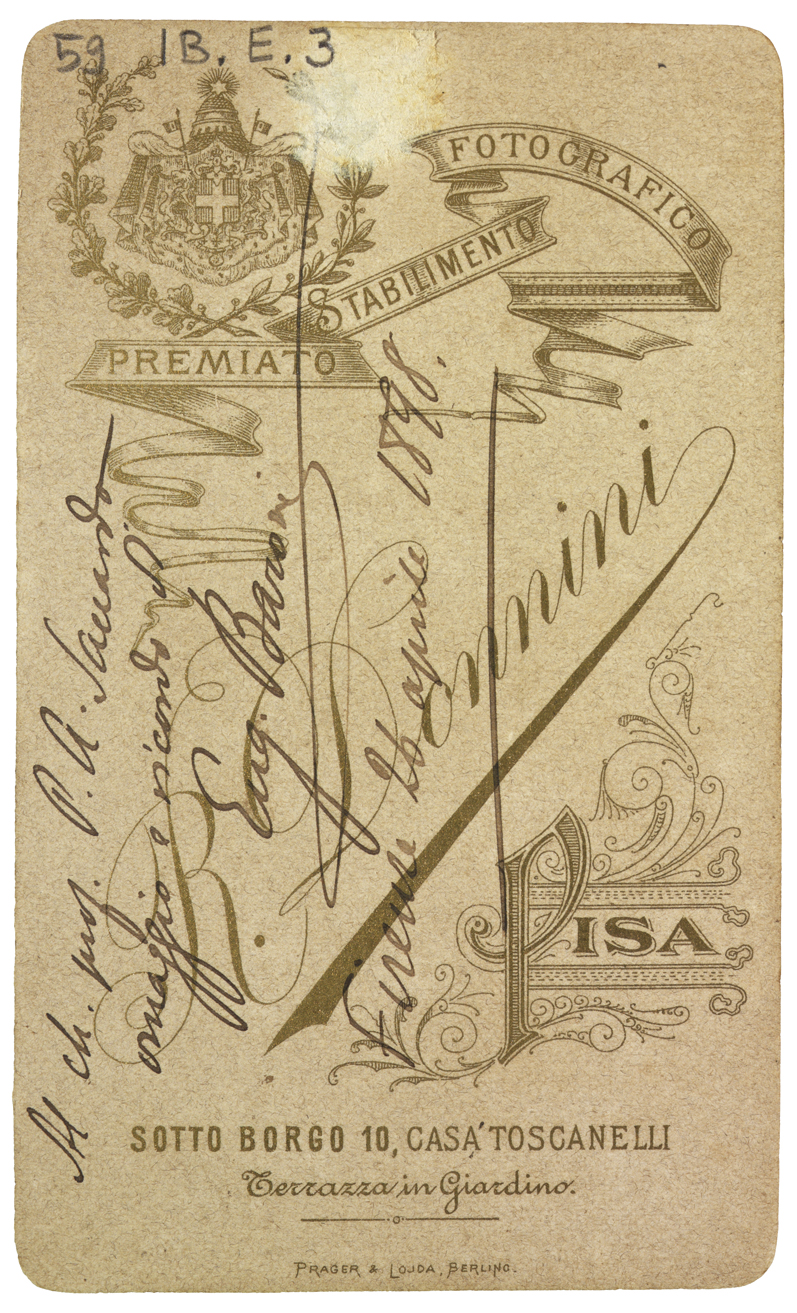 59 IB. E. 3
PREMIATO
STABILIMENTO
FOTOGRAFICO
R. Pennini
PISA
SOTTO BORGO 10, CASA TOSCANELLI
Terrazza in Giardino.
PRAGER & LOJDA, BERLINO.
Al ch. prof. P. A. Saccardo
omaggio e ricordo
Eug. Baroni
Firenze aprile 1898.